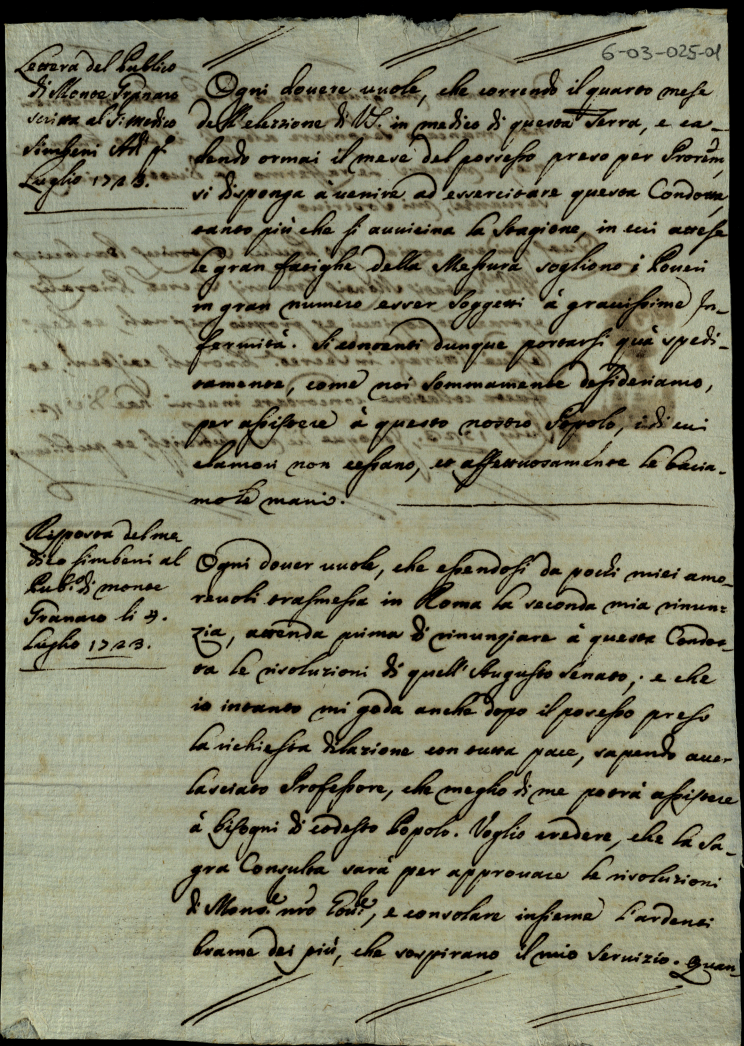 6-03-025-01
Lettera del Publico
di Monte Granaro
scritta al Sr. Medico
Simbeni
Luglio 1723.
Ogni dovere vuole, che correndo il quarto mese
dell'elezzione di VS. in medico di questa Terra, e ca-
dendo ormai il mese del possesso preso per Prorem,
si disponga à venire ad essercitare questa Condotta,
tanto più che si avvicina la Stagione, in cui attese
le gran fatighe della Messura sogliono i Poveri
in gran numero esser soggetti à gravissime In-
fermità. Si contenti dunque portarsi quà spedi-
tamente, come noi sommamente desideriamo,
per assistere à questo nostro Popolo, i di cui
clamori non cessano, et affettuosamente le bacia-
mo le mani.
Risposta del me
dico Simbeni al
Pub.o di monte
Granaro li 4.
Luglio 1723.
Ogni dover vuole, che essendosi da pochi miei amo-
revoli trasmessa in Roma la seconda mia rinun-
zia, attenda prima di rinunziare à questa Condot-
ta le risoluzioni di quell'Augusto Senato, e che
io intanto mi goda anche dopo il possesso preso
la richiesta dilazione con tutta pace, sapendo aver
lasciato Professore, che meglio di me potrà assistere
à bisogni di codesto Popolo. Voglio credere, che la Sa-
gra Consulta sarà per approvare le risoluzioni
di Mons.e nro, e consolare insieme l'ardenti
brame dei più, che sospirano il mio servizio. Quan-